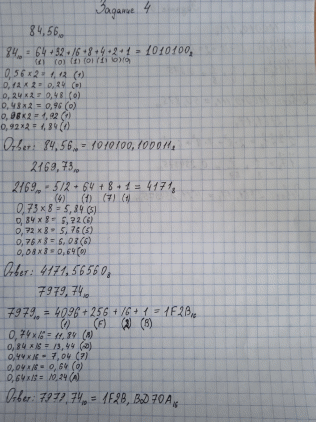 Задание 4
84,56₁₀
84₁₀ = 64+32+16+8+4+2+1 = 1010100₂
(1) (0) (1) (0) (1) (0) (0)
0,56×2 = 1,12 (1)
0,12×2 = 0,24 (0)
0,24×2 = 0,48 (0)
0,48×2 = 0,96 (0)
0,96×2 = 1,92 (1)
0,92×2 = 1,84 (1)
Ответ: 84,56₁₀ = 1010100,100011₂
2169,73₁₀
2169₁₀ = 512 + 64 + 8 + 1 = 4171₈
(4) (1) (7) (1)
0,73×8 = 5,84 (5)
0,84×8 = 6,72 (6)
0,72×8 = 5,76 (5)
0,76×8 = 6,08 (6)
0,08×8 = 0,64 (0)
Ответ: 4171,56560₈
7979,74₁₀
7979₁₀ = 4096 + 256 + 16 + 1 = 1F2B₁₆
(1) (F) (2) (B)
0,74×16 = 11,84 (B)
0,84×16 = 13,44 (D)
0,44×16 = 7,04 (7)
0,04×16 = 0,64 (0)
0,64×16 = 10,24 (A)
Ответ: 7979,74₁₀ = 1F2B,BD70A₁₆